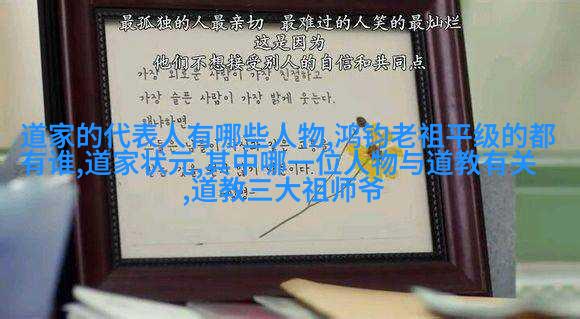 最孤独的人最亲切 最难过的人笑的最灿烂
这是因为
他们不想接受别人的自信和共同点
가장 외로운 사람이 가장 친절하고
가장 슬픈 사람이 가장 밝게 웃는다.
왜냐하면
道家的代表人有哪些人物,鸿钧老祖平级的都
有谁,道家状元,其中哪一位人物与道教有关
,道教三大祖师爷